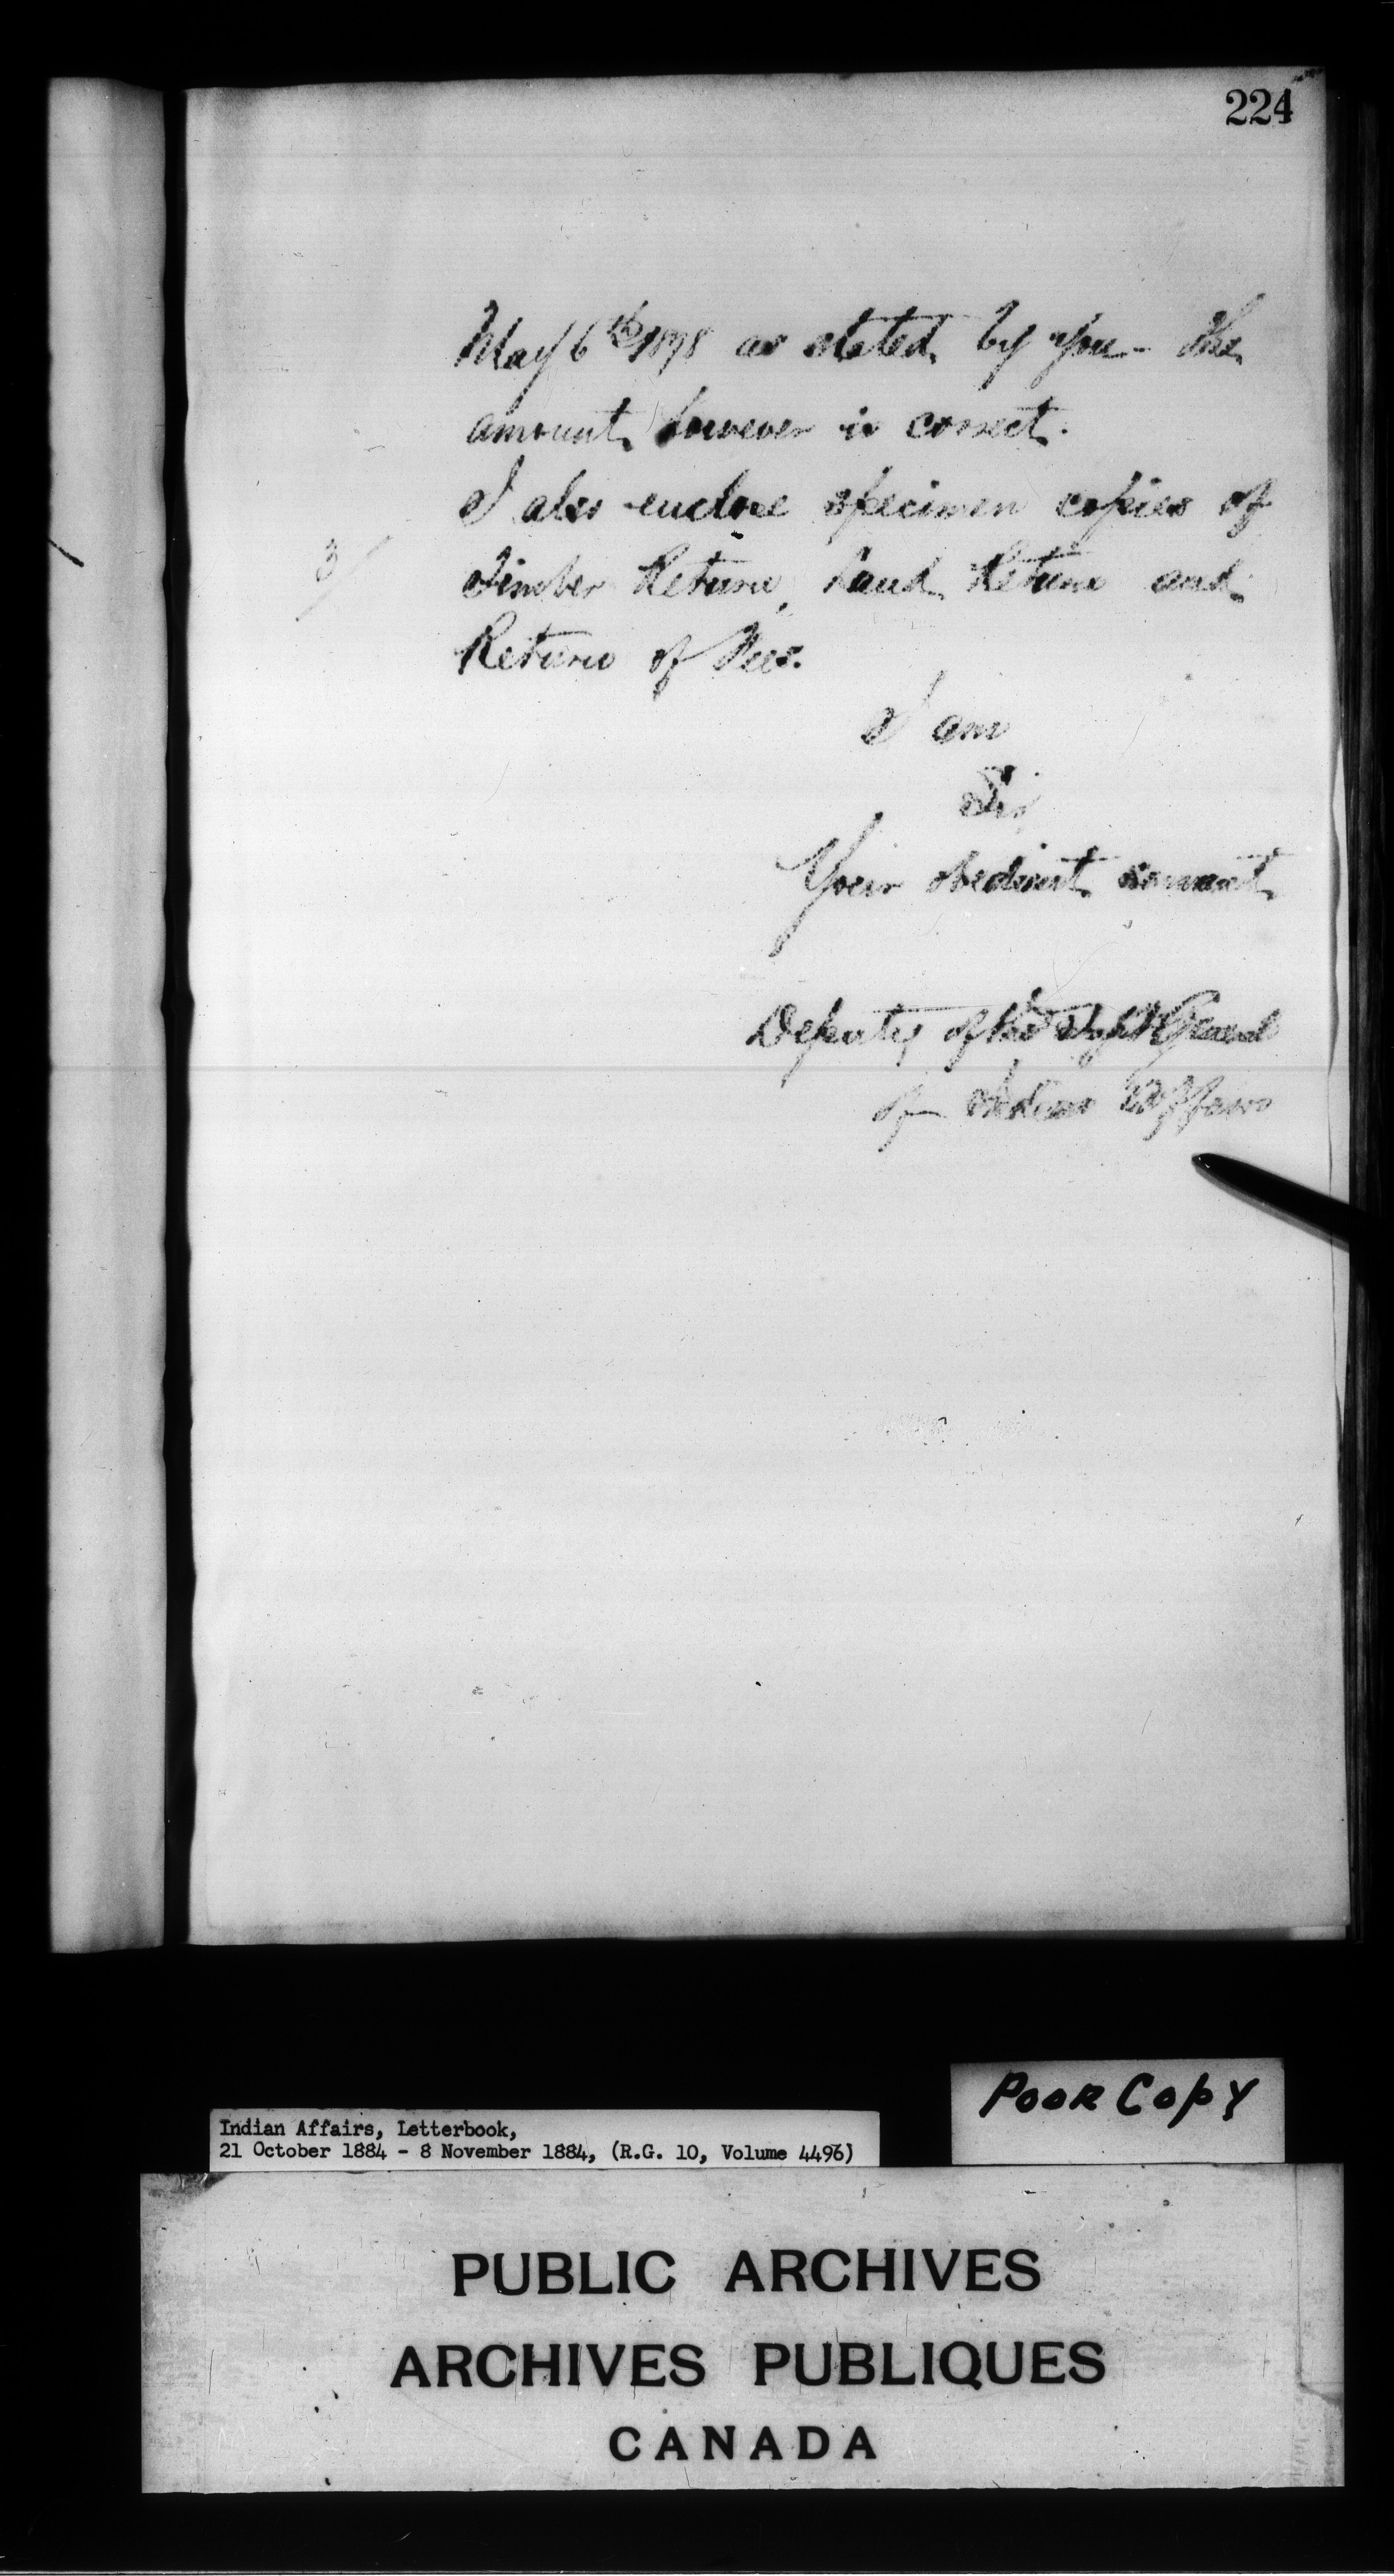 224
May 6th 1878 as stated by you - the
amount, however is correct.
I also enclose specimen copies of
3/
Timber Return, Land Return and
Return of Fees.
I am
Sir,
Your obedient servant
Deputy of the Supt General
of Indian Affairs
POOR COPY
Indian Affairs, Letterbook,
21 October 1884 - 8 November 1884, (R.G. 10, Volume 4496)
PUBLIC ARCHIVES
ARCHIVES PUBLIQUES
CANADA